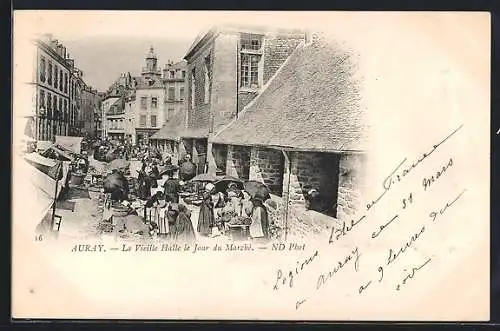 16
AURAY. — La Vieille Halle le Jour du Marché. — ND Phot
Logions hôtel de France,
à Auray ce 31 mars
à 9 heures du
soir